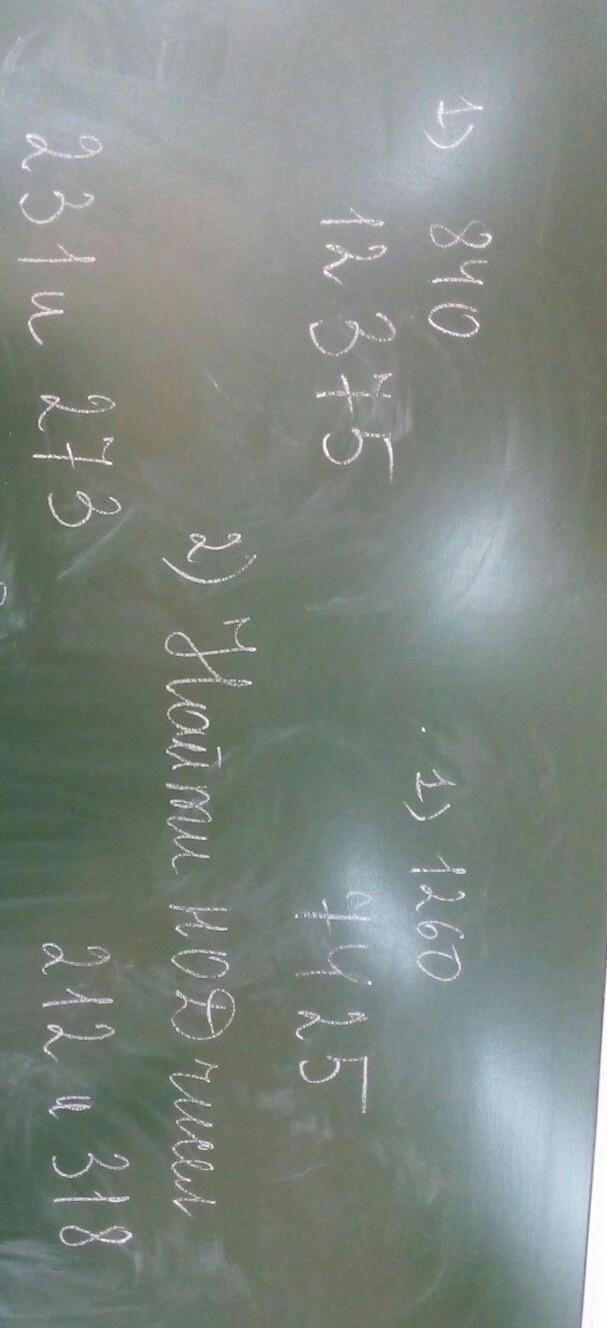 1) 840
1) 1260
12375
7425
2) Найти НОД чисел
231 и 273
212 и 318